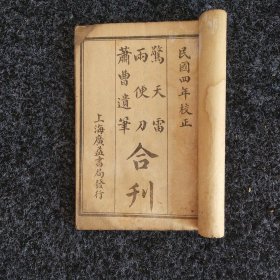 民國四年校正
驚天雷
兩便刀
蕭曹遺筆
合刊
上海廣益書局發行